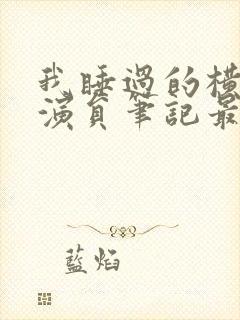 我睡過的橫
演員筆記最
藍焰